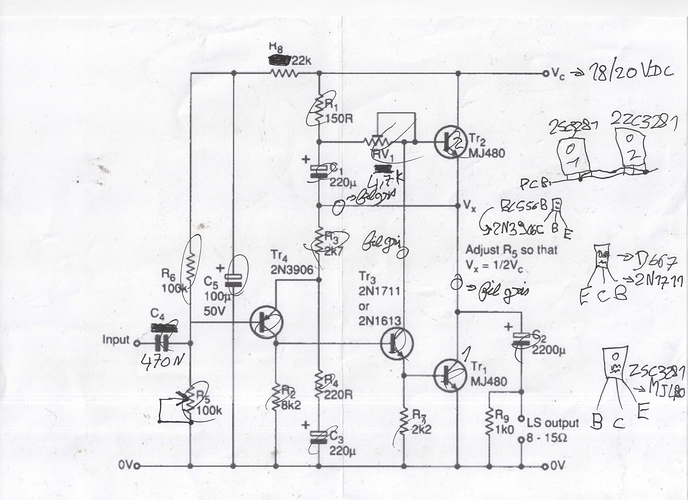 R8
22k
Vc → 18/20 VDC
R1
150R
Tr2
MJ480
2SC3281
2
1
2
RV1
4,7K
+
C1
220µ
PCB
fil gris
Vx
BC556B
2N3906
C B E
R3
2k7
fil gris
Adjust R5 so that
Vx = 1/2Vc
R6
100k
+
C5
100µ
50V
Tr4
2N3906
Tr3
2N1711
or
2N1613
fil gris
D667
2N1711
E C B
C4
470N
Input
+
C2
2200µ
1
Tr1
MJ480
2SC3281
MJ480
B C E
R5
100k
R2
8k2
R4
220R
R7
2k2
R9
1k0
LS output
8 - 15Ω
+
C3
220µ
0V
0V